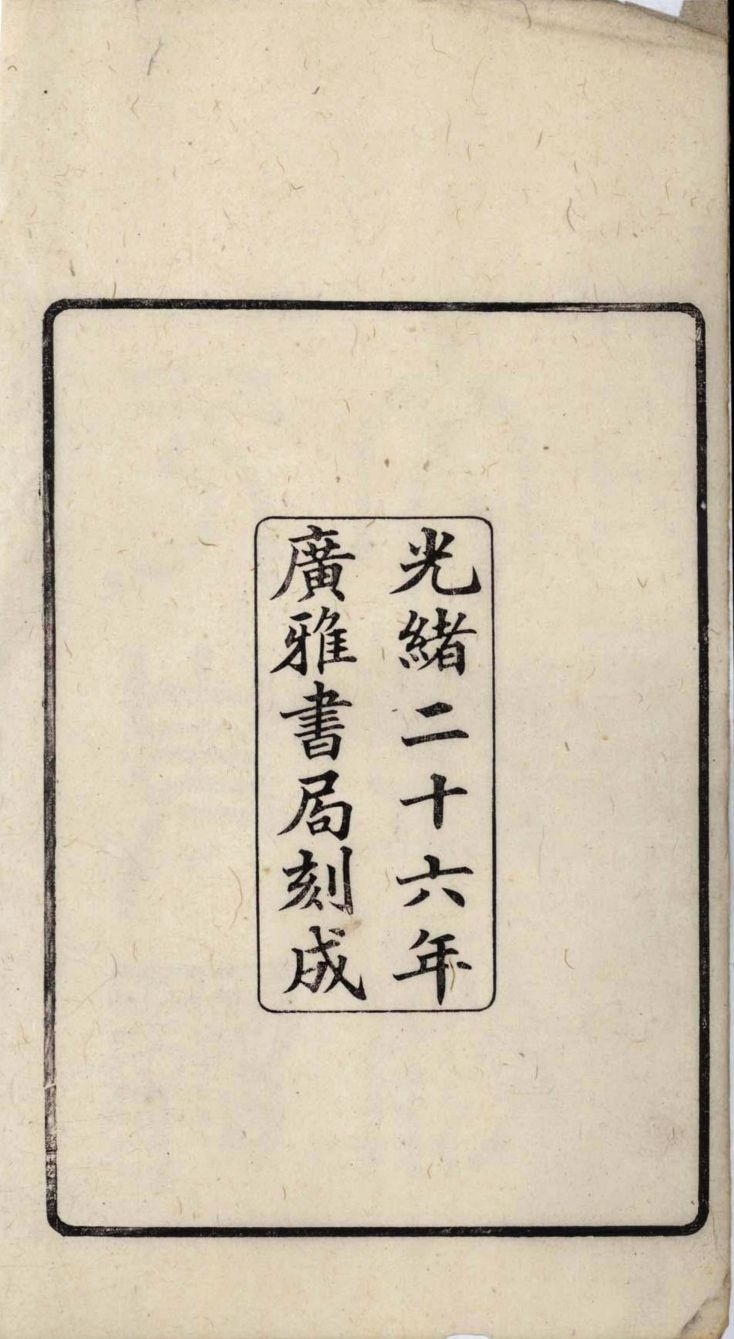 光緒二十六年
廣雅書局刻成